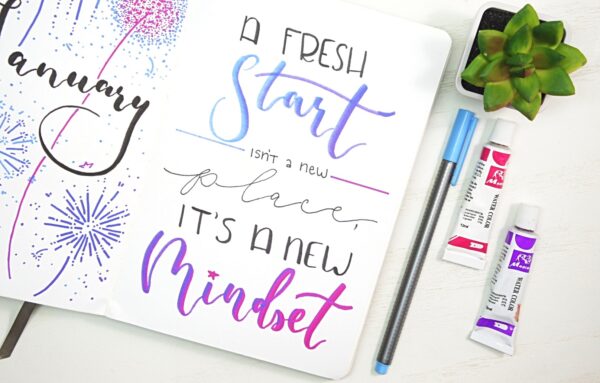 January
A FRESH
Start
ISN'T A NEW
place,
IT'S A NEW
Mindset
WATER COLOR
WATER COLOR